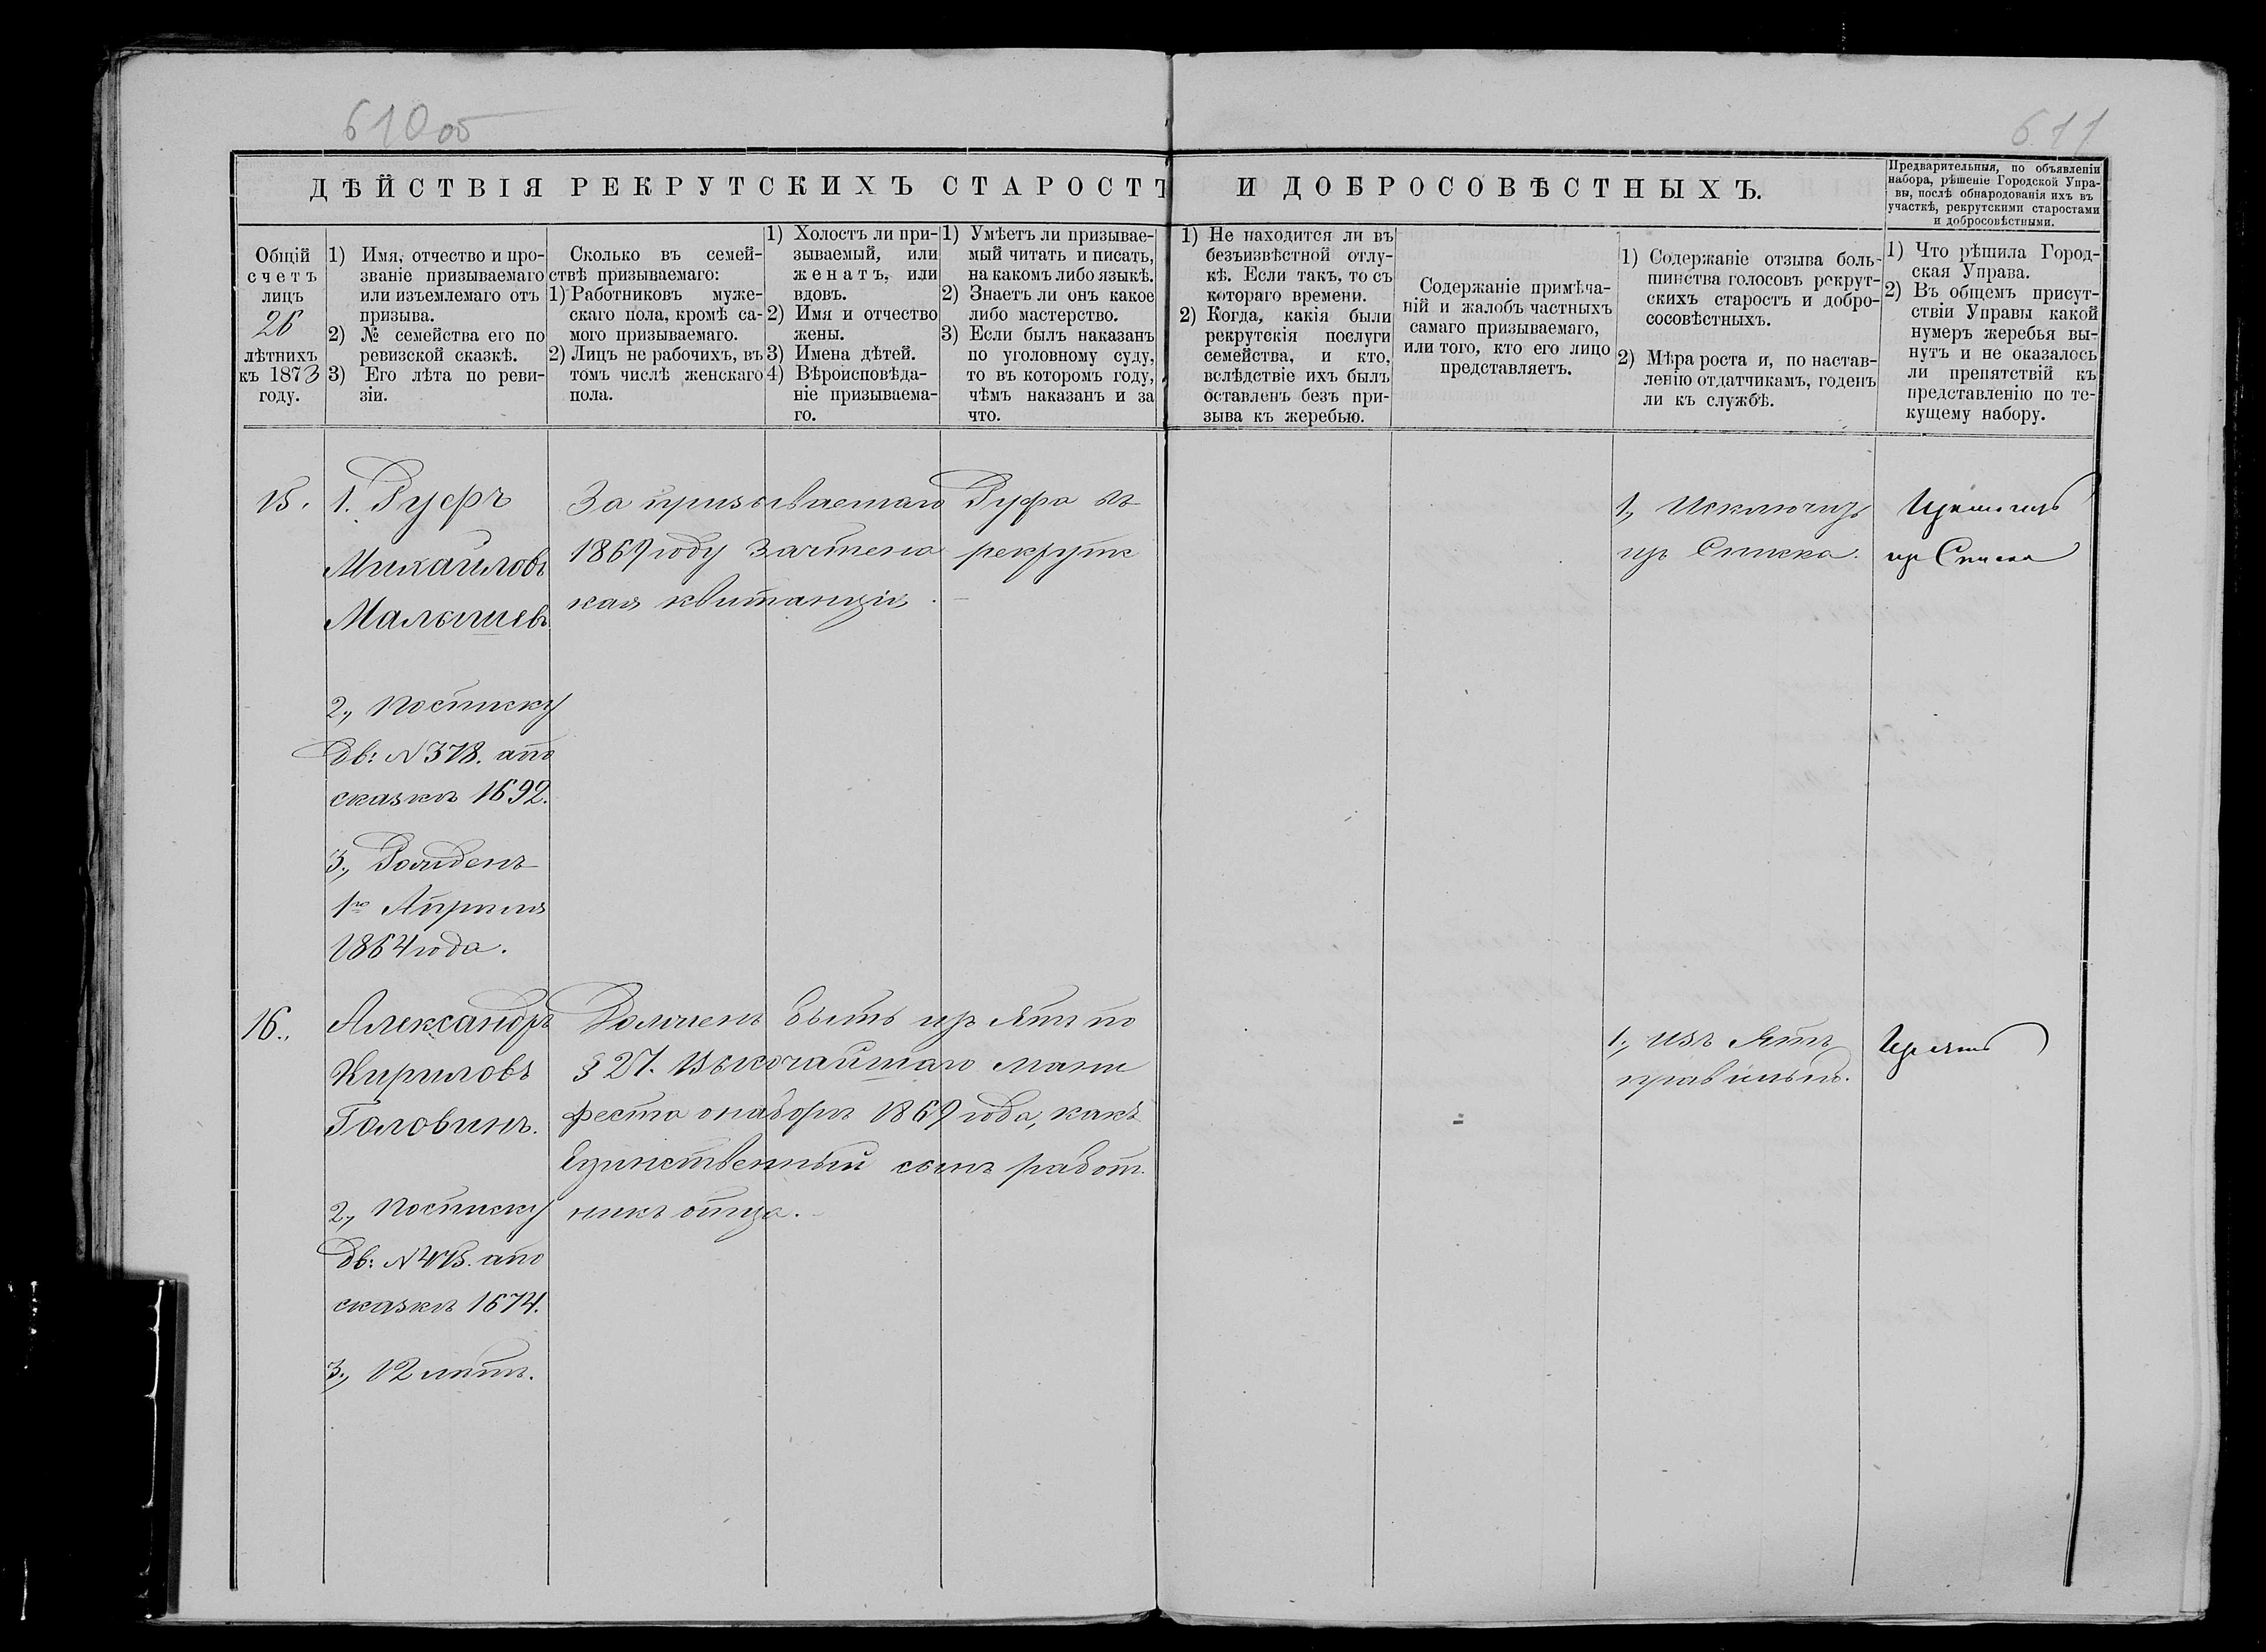 610 об
611
ДѢЙСТВІЯ РЕКРУТСКИХЪ СТАРОСТЪ И ДОБРОСОВѢСТНЫХЪ.
Предварительныя, по объявленіи
набора, рѣшеніе Городской Упра-
вы, послѣ обнародованія ихъ въ
участкѣ, рекрутскими старостами
и добросовѣстными.
Общій
счетъ
лицъ
26
лѣтнихъ
къ 1873
году.
1) Имя, отчество и про-
званіе призываемаго
или изъемлемаго отъ
призыва.
2) № семейства его по
ревизской сказкѣ.
3) Его лѣта по реви-
зіи.
Сколько въ семей-
ствѣ призываемаго:
1) Работниковъ муже-
скаго пола, кромѣ са-
мого призываемаго.
2) Лицъ не рабочихъ, въ
томъ числѣ женскаго
пола.
1) Холостъ ли при-
зываемый, или
женатъ, или
вдовъ.
2) Имя и отчество
жены.
3) Имена дѣтей.
4) Вѣроисповѣда-
ніе призываема-
го.
1) Умѣетъ ли призывае-
мый читать и писать,
на какомъ либо языкѣ.
2) Знаетъ ли онъ какое
либо мастерство.
3) Если былъ наказанъ
по уголовному суду,
то въ которомъ году,
чѣмъ наказанъ и за
что.
1) Не находится ли въ
безъизвѣстной отлу-
кѣ. Если такъ, то съ
котораго времени.
2) Когда, какія были
рекрутскія послуги
семейства, и кто,
вслѣдствіе ихъ былъ
оставленъ безъ при-
зыва къ жеребью.
Содержаніе примѣча-
ній и жалобъ частныхъ
самаго призываемаго,
или того, кто его лицо
представляетъ.
1) Содержаніе отзыва боль-
шинства голосовъ рекрут-
скихъ старостъ и добро-
сосовѣстныхъ.
2) Мѣра роста и, по настав-
ленію отдатчикамъ, годенъ
ли къ службѣ.
1) Что рѣшила Город-
ская Управа.
2) Въ общемъ присут-
ствіи Управы какой
нумеръ жеребья вы-
нутъ и не оказалось
ли препятствій къ
представленію по те-
кущему набору.
15.
1. Руфъ
Михаиловъ
Малышевъ
2., Посписку
дв: N 378. апо
сказкѣ 1692.
3., Рожденъ
1го Апрѣля
1864 года.
За призываемаго Руфа въ
1869 году зачтена рекрутс
кая квитанція.
1., Исключить
изъ Списка.
изъ Списка
16.,
Александръ
Кириловъ
Головинъ.
2., Посписку
дв: N 415. апо
сказкѣ 1674.
3., 12 лѣтъ.
Долженъ быть изъ ятъ по
§ 27. Высочайшаго мани
феста онаборѣ 1869 года, какъ
Единственный сынъ работ.
никъ отца.
1., Изъ ятъ
правильно.
Изъятъ